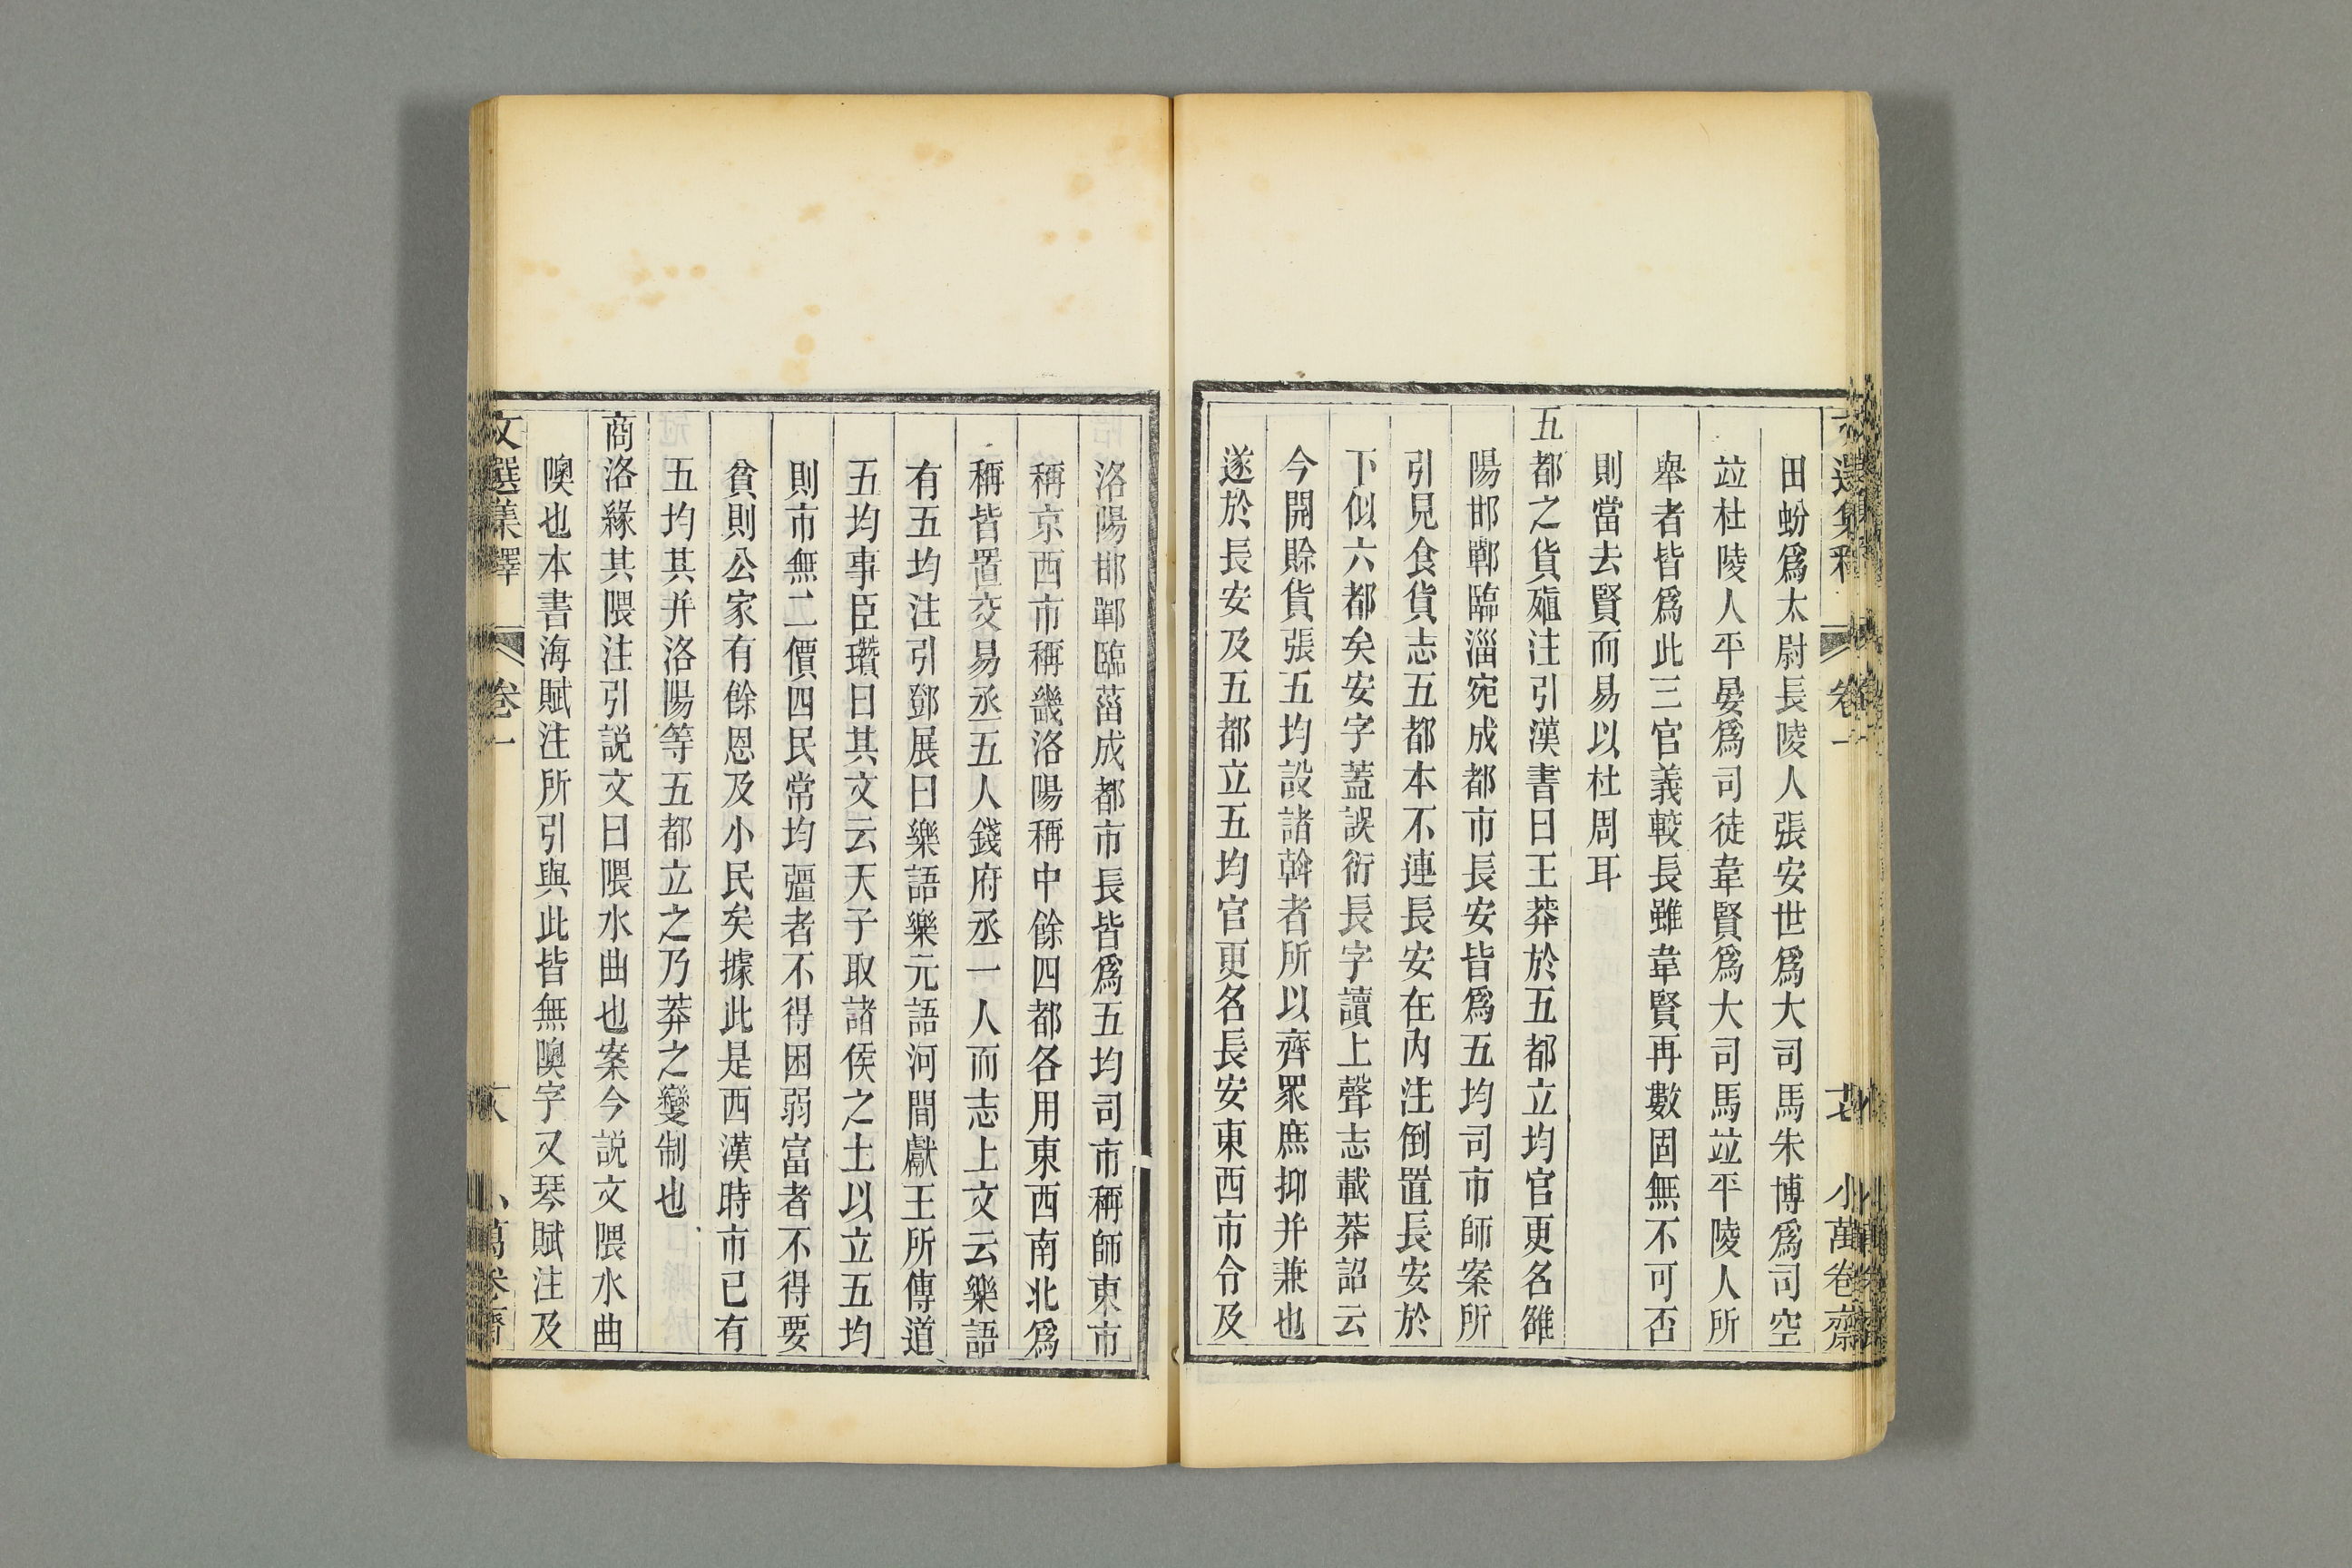 田蚡爲太尉長陵人張安世爲大司馬朱博爲司空
竝杜陵人平晏爲司徒韋賢爲大司馬竝平陵人所
舉者皆爲此三官義較長雖韋賢再數固無不可否
則當去賢而易以杜周耳
五都之貨殖注引漢書曰王莽於五都立均官更名雒
陽邯鄲臨淄宛成都市長安皆爲五均司市師案所
引見食貨志五都本不連長安在內注倒置長安於
下似六都矣安字蓋誤衍長字讀上聲志載莽詔云
今開賒貨張五均設諸斡者所以齊眾庶抑并兼也
遂於長安及五都立五均官更名長安東西市令及
洛陽邯鄲臨菑成都市長皆爲五均司市稱師東市
稱京西市稱畿洛陽稱中餘四都各用東西南北爲
稱皆置交易丞五人錢府丞一人而志上文云樂語
有五均注引鄧展曰樂語樂元語河間獻王所傳道
五均事臣瓚曰其文云天子取諸侯之土以立五均
則市無二價四民常均彊者不得困弱富者不得要
貧則公家有餘恩及小民矣據此是西漢時市已有
五均其并洛陽等五都立之乃莽之變制也
商洛緣其隈注引説文曰隈水曲也案今説文隈水曲
隩也本書海賦注所引與此皆無隩字又琴賦注及
文選集釋 卷一